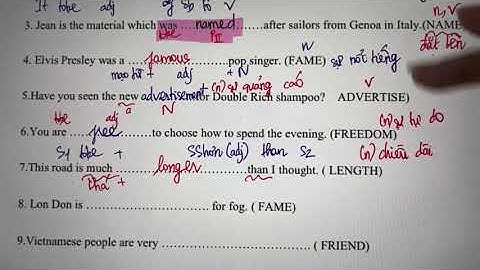 It tobe adj sb to V
n, V
3. Jean is the material which was named after sailors from Genoa in Italy.(NAME
tobe PII đặt tên
4. Elvis Presley was a .... famous .... pop singer. (FAME) sự nổi tiếng
mạo từ + adj + N N
(n) sự quảng cáo V
5.Have you seen the new advertisement for Double Rich shampoo? ADVERTISE)
tobe adj a N (n) sự tự do
6.You are .... free ............to choose how to spend the evening. (FREEDOM)
S1 tobe + SShơn (adj) than S2 (n) chiều dài
7.This road is much ........ longer ............than I thought. ( LENGTH)
Phá +
8. Lon Don is .................................... for fog. ( FAME)
9.Vietnamese people are very ............................................ ( FRIEND)